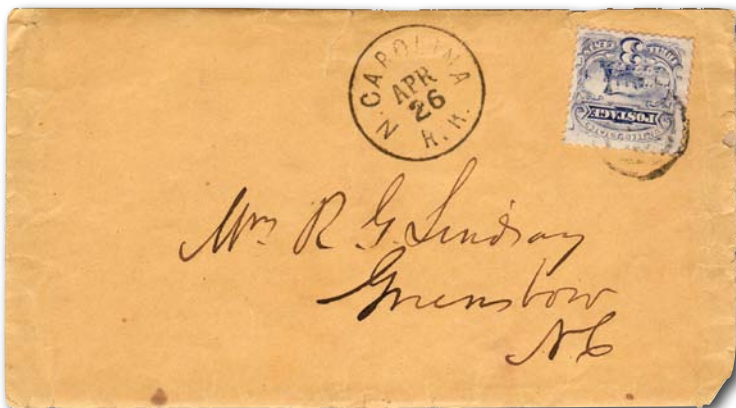 N. CAROLINA R.R.
APR
26
3
POSTAGE
UNITED STATES
R. G. Lindsay
Greensboro
N C